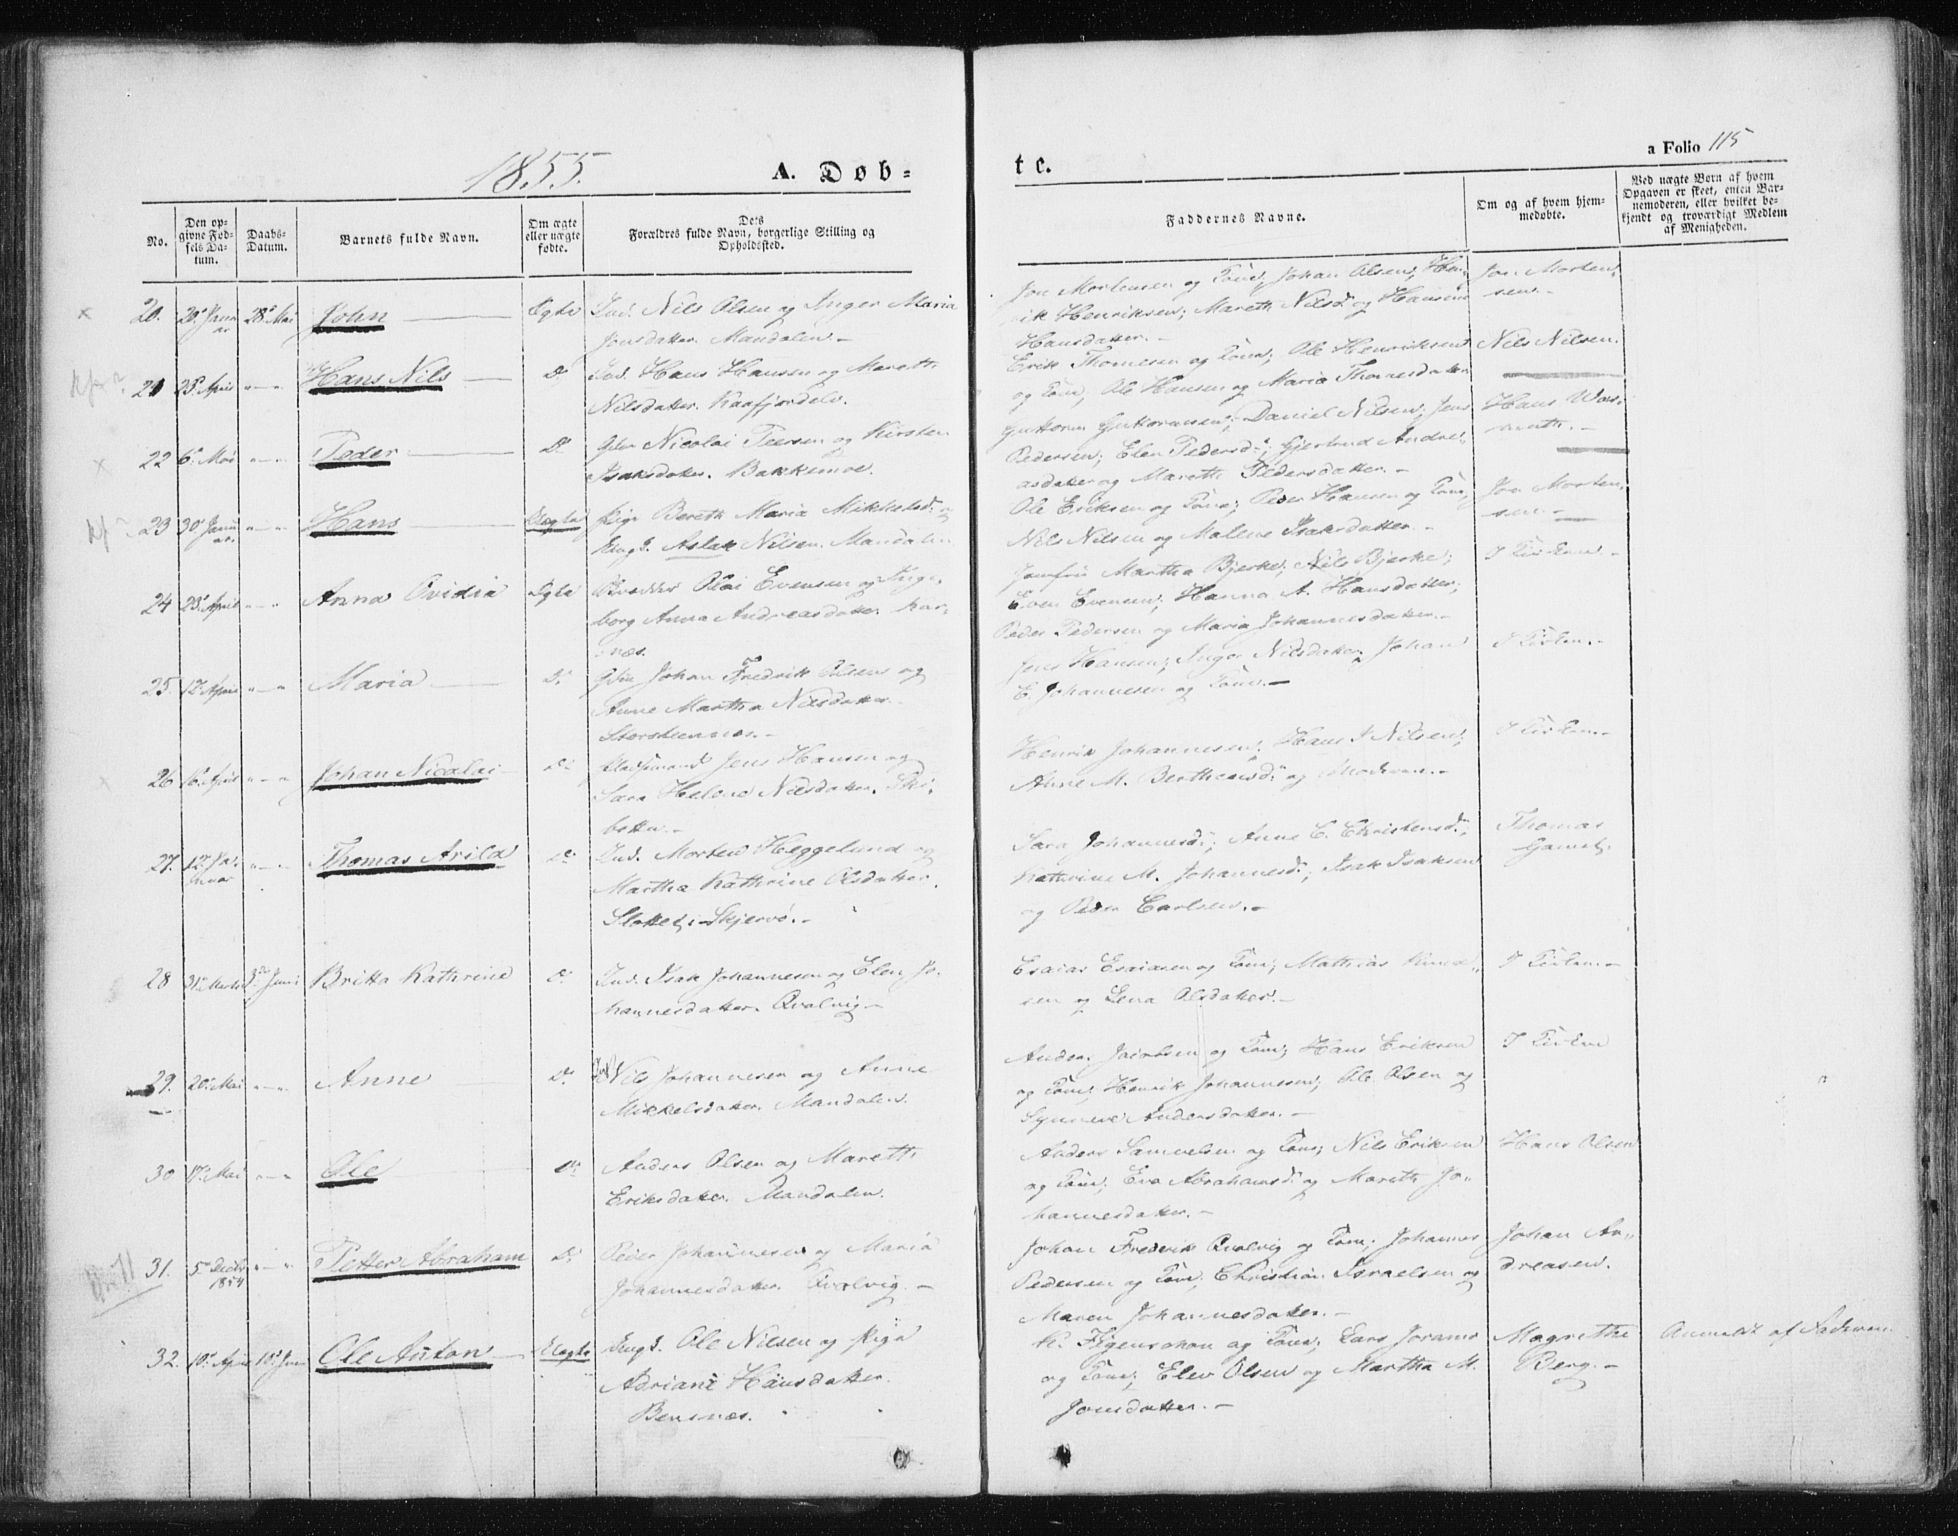 1855.
A. Døb=
te.
a Folio 115
No.
Den op-
givne Fød-
sels Da-
tum.
Daabs-
Datum.
Barnets fulde Navn.
Om ægte
eller uægte
fødte.
Dets
Forældres fulde Navn, borgerlige Stilling og
Opholdssted.
Faddernes Navne.
Om og af hvem hjem-
medøbte.
Ved uægte Børn af hvem
Opgaven er skeet, enten Bar-
nemoderen, eller hvilket be-
kjendt og troværdigt Medlem
af Menigheden.
20. 28de Mai John Ægte Ind. Nils Olsen og Inger Maria
Jonsdatter. Mandalen.-
Jon Mortensen og Kone; Johan Olsen; Hen-
rik Henriksen; Mareth Nilsd. og
Hansdatter.-
Jon Morten-
sen.-
21 25 April Hans Nils Do Ind. Hans Hansen og Mareth
Nilsdatter. Kaafjorddalen.
Erik Thomesen og Kone; Ole Henriksen
og Kone; Ole Hansen og Maria Thomesdatter
Nils Nilsen.
22 6 Mai Peder Do Nicolai Peersen og Kirsten
Isaksdatter. Bakkemoe.
Guttorm Guttormsen; Daniel Nilsen; Jens
Pedersen; Elen Pedersd.; Gjertrud Andre-
asdatter og Mareth Pedersdatter.-
Hans
23 30 Hans Uægte Pige Bereth Maria Mikkelsd. og
Ungk. Aslak Nilsen. Mandalen
Ole Eriksen og Kone; Peder Hansen og Kone;
Nils Nilsen og Malene Isaksdatter.-
Jon Morten-
sen.-
24 23 April Anna Ovidia Ægte Olai Evensen og Inge-
borg Anna Andreasdatter. Kar-
næs.
Jomfru Martha Bjerke; Nils Bjerke;
Even Evensen; Hanna A. Hansdatter;
Peder Pedersen og Maria Johannesdatter.-
I Kirken.-
25 12 April Maria Do Johan Fredrik Olsen og
Anne Martha Nilsdatter.
Storsteennes.-
Jens Hansen; Inger Nilsdatter; Johan
E. Johannesen og Kone.-
I Kirken.-
26 16 April Johan Nicolai Do Jens Hansen og
Sara Helene Nilsdatter. Ski-
botten.-
Henrik Johannesen; Hans J Nilsen;
Anne M. Bertheusd. og Moderen.-
I Kirken.-
27. 12 Ja-
nuar Thomas Arild Do Ind. Morten Heggelund og
Martha Kathrine Olsdatter.
Slottet i Skjervø.-
Sara Johannesd.; Anne C. Christensd.;
Kathrine M. Johannesd.; Isak Isaksen
og Peder Carlsen.-
Thomas
28 31 Marts 3 Juni Britta Kathrine Do Ind. Isak Johannesen og Elen Jo-
hannesdatter. Qvalvig.-
Esaias Esaiasen og Kone; Mathias
sen og Lena Olsdatter.-
I Kirken.-
29. 20 Mai Anne Do Ind. Nils Johannesen og Anne
Mikkelsdatter. Mandalen.
Anders Jacobsen og Kone; Hans Eriksen
og Kone; Henrik Johannesen; Ole Olsen og
Synneve Andersdatter.-
I Kirken
30 17 Mai Ole Do Anders Olsen og Mareth
Eriksdatter. Mandalen.
Anders Samuelsen og Kone; Nils Eriksen
og Kone; Eva Abrahamsd. og Mareth Jo-
hannesdatter.-
Hans Olsen
31. 5 Decbr
1854 Petter Abraham Do Peder Johannesen og Maria
Johannesdatter. Qvalvig.-
Johan Fredrik Qvalvig og Kone; Johannes
Pedersen og Kone; Christian Israelsen og
Maren Johannesdatter.-
Johan An-
dreasen.
32. 10 April 10 Juni Ole Anton Uægte Ungk. Ole Nilsen og Pige
Adriane Hansdatter.
Bensnæs.
K. Figenschou og Kone; Lars Jorams
og Kone; Elen Olsen og Martha M.
Jonsdatter.-
Magrethe
Berg.-
Anmeldt af Faderen.